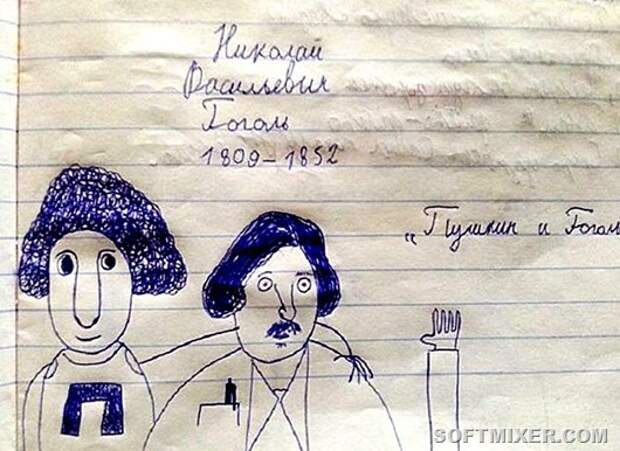 Николай
Васильевич
Гоголь
1809-1852
„Пушкин и Гогол
П
SOFTMIXER.COM